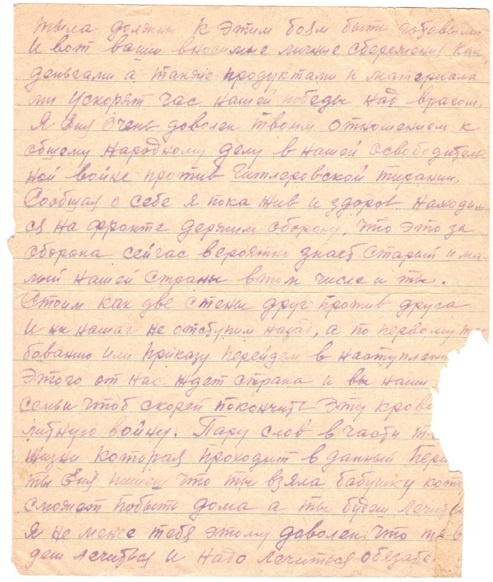 тыла должны к этим боям быть готовыми
И вот ваши вносимые личные сбережения как
деньгами а также продуктами и материала
ми ускорят час нашей победы над врагом.
Я Еня очень доволен твоим отношением к
общему народному делу в нашей освободитель
ной войне против Гитлеровской тирании.
Сообщая о себе я пока жив и здоров находим
ся на фронте держим оборону, что это за
оборона сейчас вероятно знает старый и ма
лый нашей страны в том числе и ты.
Стоим как две стены друг против друга
и ни шагу не отступим назад, а по первому тре
бованию или приказу перейдем в наступлен
этого от нас ждет страна и вы наши
семьи чтоб скорей покончить эту крово
литную войну. Пару слов в части т
жизни которая проходит в данный пери
ты Еня пишеш что ты взяла бабушку кот
сможет побыть дома а ты будеш лечит
Я не менее тебя этому доволен, что ты
деш лечиться и надо лечиться обязат